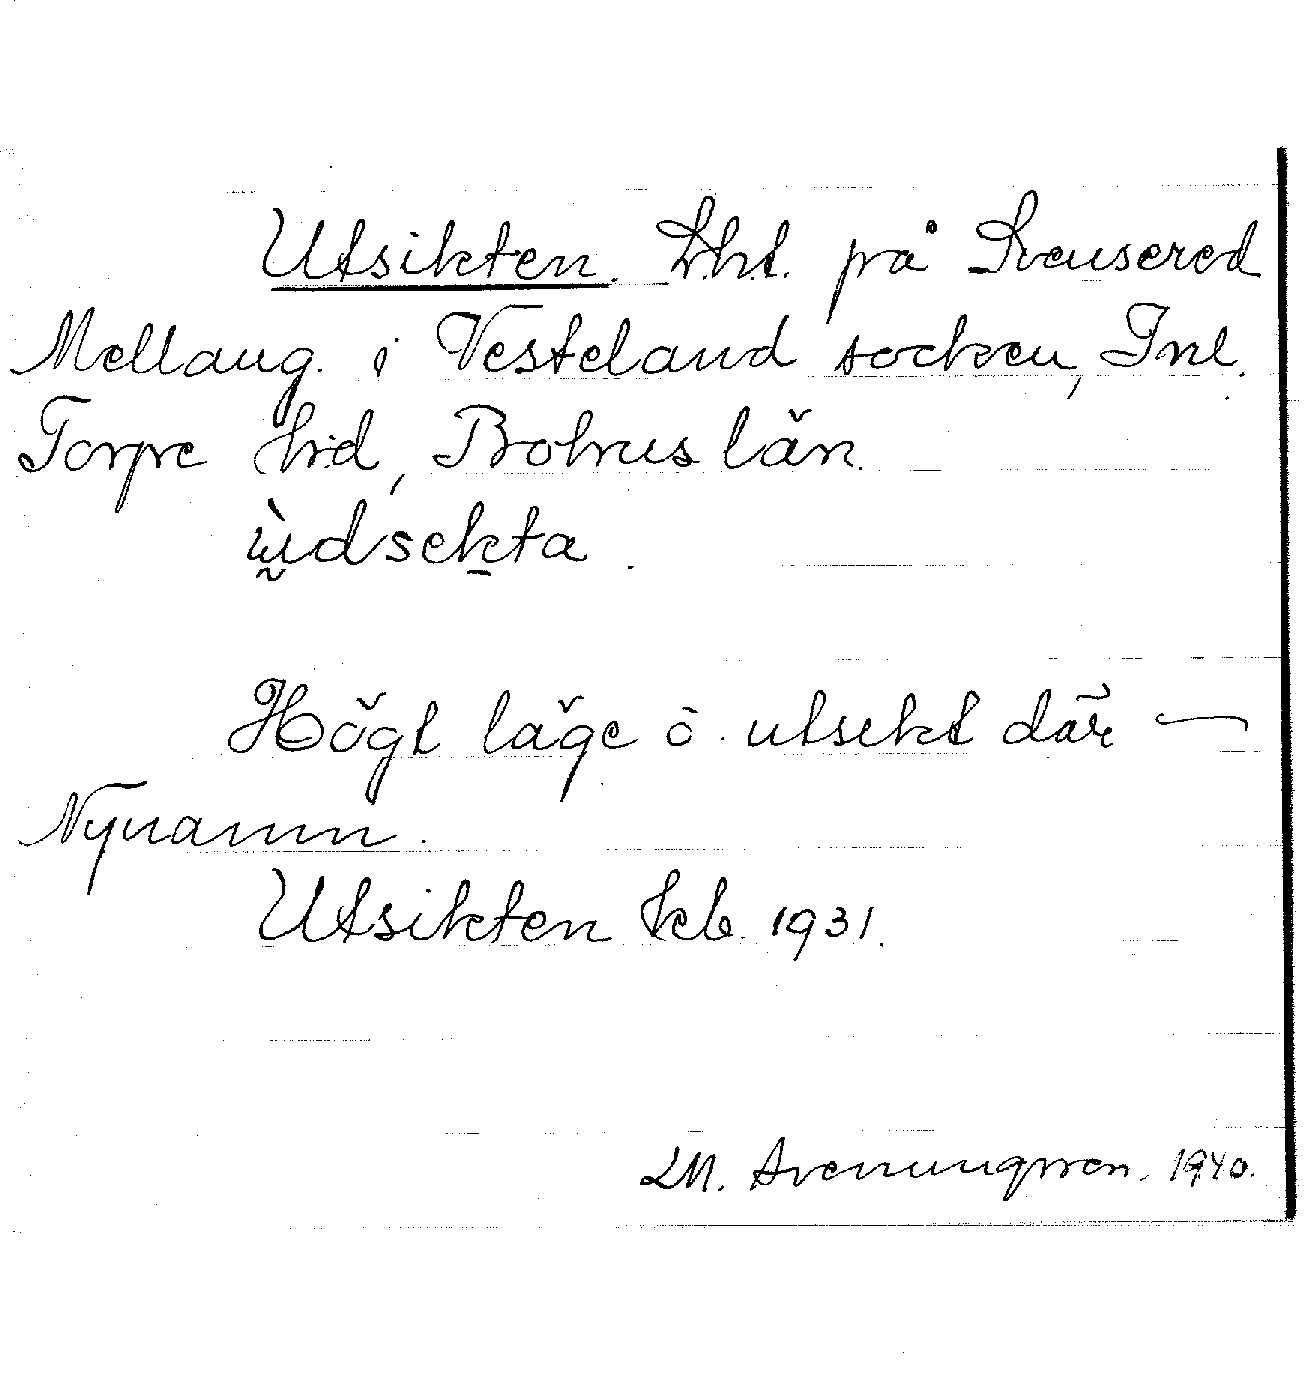 Utsikten. Lht. på Svensered
Mellang. i Vesteland socken, Inl.
Torpe hd, Bohus län.
ùdsekta.
Högt läge o. utsikt där —
Nynamn.
Utsikten kb 1931.
1940.